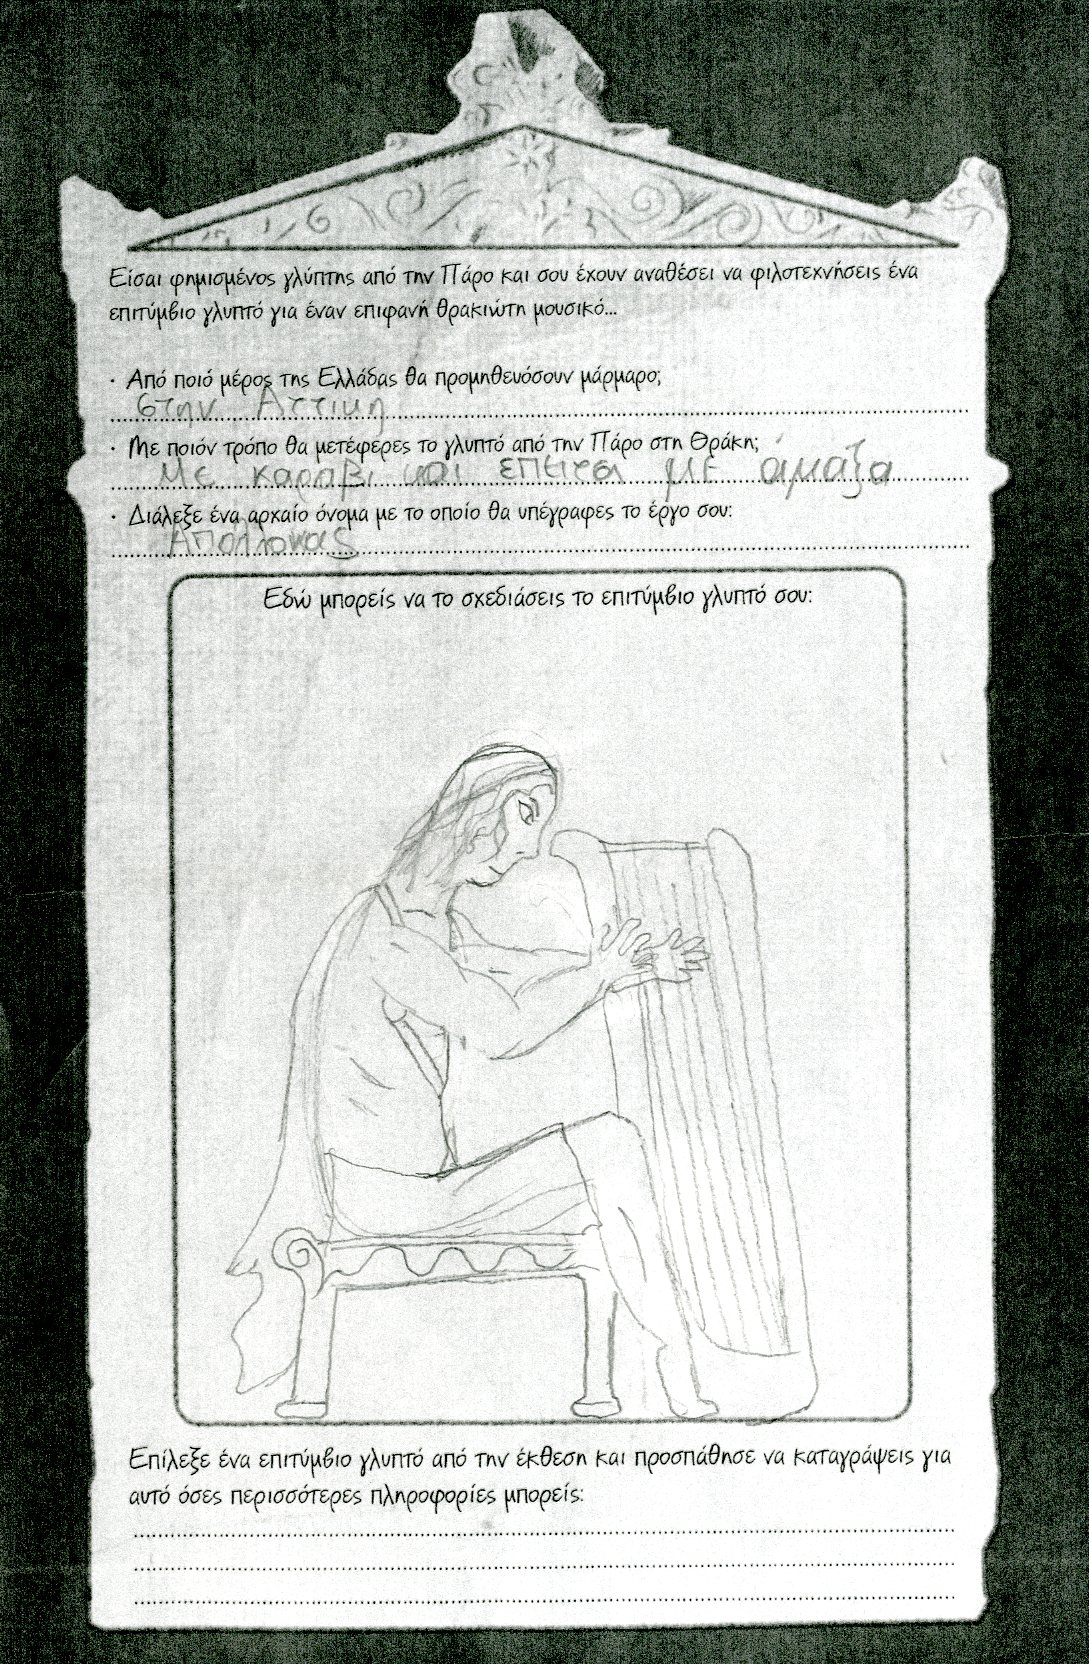 Είσαι φημισμένος γλύπτης από την Πάρο και σου έχουν αναθέσει να φιλοτεχνήσεις ένα
επιτύμβιο γλυπτό για έναν επιφανή θρακιώτη μουσικό...
· Από ποιό μέρος της Ελλάδας θα προμηθευόσουν μάρμαρο;
στην Αττικη
· Με ποιόν τρόπο θα μετέφερες το γλυπτό από την Πάρο στη Θράκη;
Με καραβι και επειτα με άμαξα
· Διάλεξε ένα αρχαίο όνομα με το οποίο θα υπέγραφες το έργο σου:
Απόλλονας
Εδώ μπορείς να το σχεδιάσεις το επιτύμβιο γλυπτό σου:
Επίλεξε ένα επιτύμβιο γλυπτό από την έκθεση και προσπάθησε να καταγράψεις για
αυτό όσες περισσότερες πληροφορίες μπορείς: